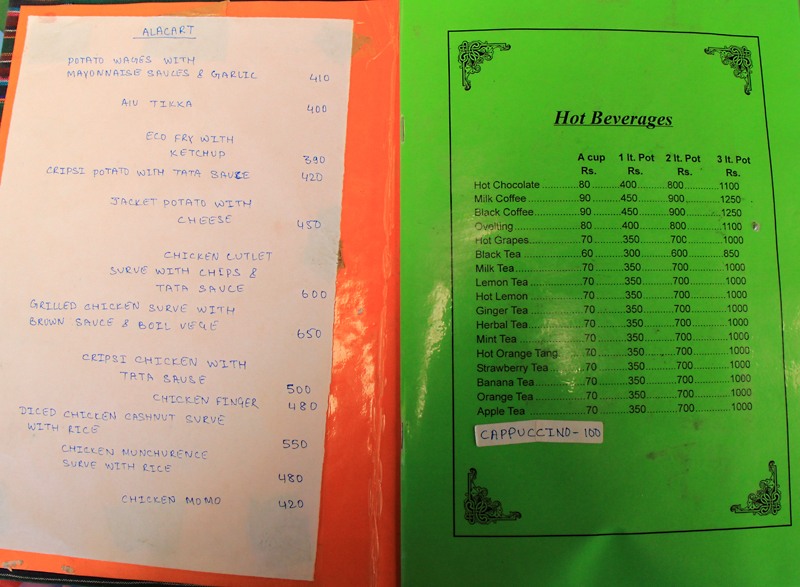 ALACART
POTATO WAGES WITH
MAYONNAISE SAUCES & GARLIC 410
ALU TIKKA 400
ECO FRY WITH
KETCHUP 390
CRIPSI POTATO WITH TATA SAUCE 420
JACKET POTATO WITH
CHEESE 450
CHICKEN CUTLET
SURVE WITH CHIPS &
TATA SAUCE 600
GRILLED CHICKEN SURVE WITH
BROWN SAUCE & BOIL VEGE 650
CRIPSI CHICKEN WITH
TATA SAUSE 500
CHICKEN FINGER 480
DICED CHICKEN CASHNUT SURVE
WITH RICE 550
CHICKEN MUNCHURENCE
SURVE WITH RICE 480
CHICKEN MOMO 420
Hot Beverages
A cup 1 lt. Pot 2 lt. Pot 3 lt. Pot
Rs. Rs. Rs. Rs.
Hot Chocolate 80 400 800 1100
Milk Coffee 90 450 900 1250
Black Coffee 90 450 900 1250
Ovelting 80 400 800 1100
Hot Grapes 70 350 700 1000
Black Tea 60 300 600 850
Milk Tea 70 350 700 1000
Lemon Tea 70 350 700 1000
Hot Lemon 70 350 700 1000
Ginger Tea 70 350 700 1000
Herbal Tea 70 350 700 1000
Mint Tea 70 350 700 1000
Hot Orange Tang 70 350 700 1000
Strawberry Tea 70 350 700 1000
Banana Tea 70 350 700 1000
Orange Tea 70 350 700 1000
Apple Tea 70 350 700 1000
CAPPUCCINO - 100